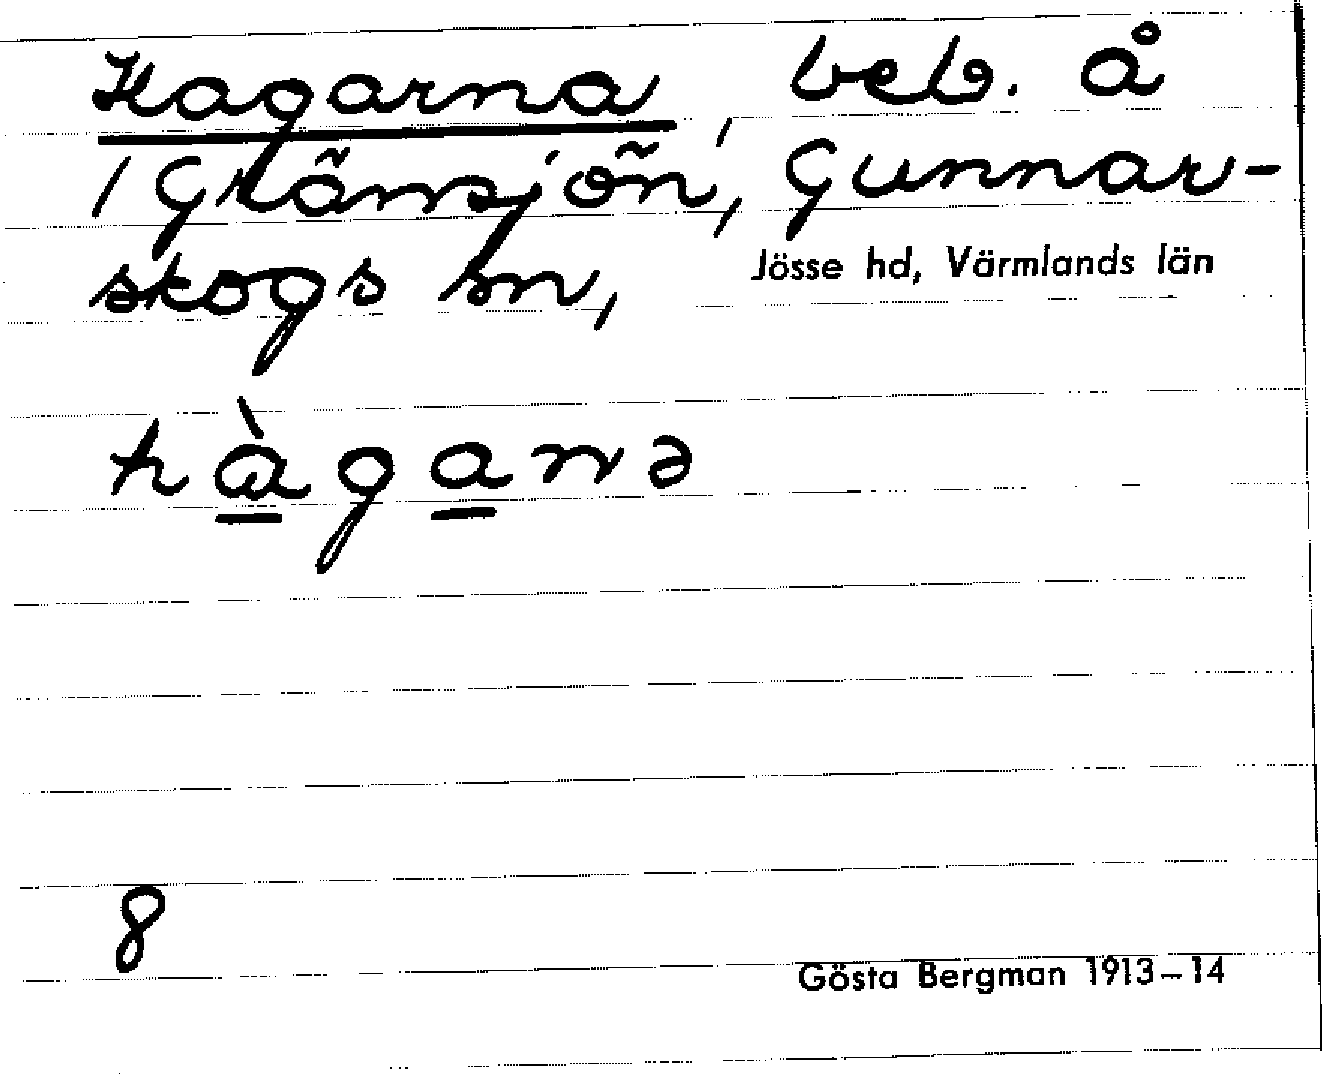 Hagarna beb. å
/Gränsjön/, Gunnar-
skogs sn, Jösse hd, Värmlands län
hàganə
8
Gösta Bergman 1913–14